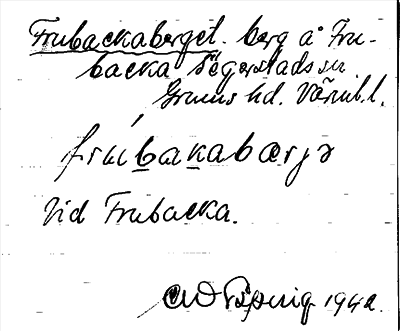 Frubackaberget. berg å Fru-
backa Segerstads sn
Grums hd. Värml. l.
frúbakabærjə
Vid Frubacka.
1942